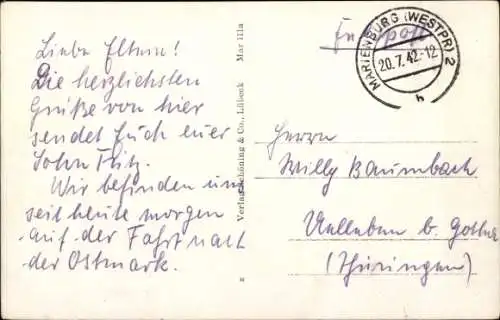 Liebe Eltern!
Die herzlichsten
Grüße von hier
sendet Euch euer
Sohn Fritz.
Wir befinden uns
seit heute morgen
auf der Fahrt nach
der Ostmark.
Verlag Schöning & Co., Lübeck Mar IIIa
Feldpost
MARIENBURG (WESTPR) 2
20.7.42.-12
h
Herrn
Willy Baumbach
Uelleben b. Gotha
(Thüringen)